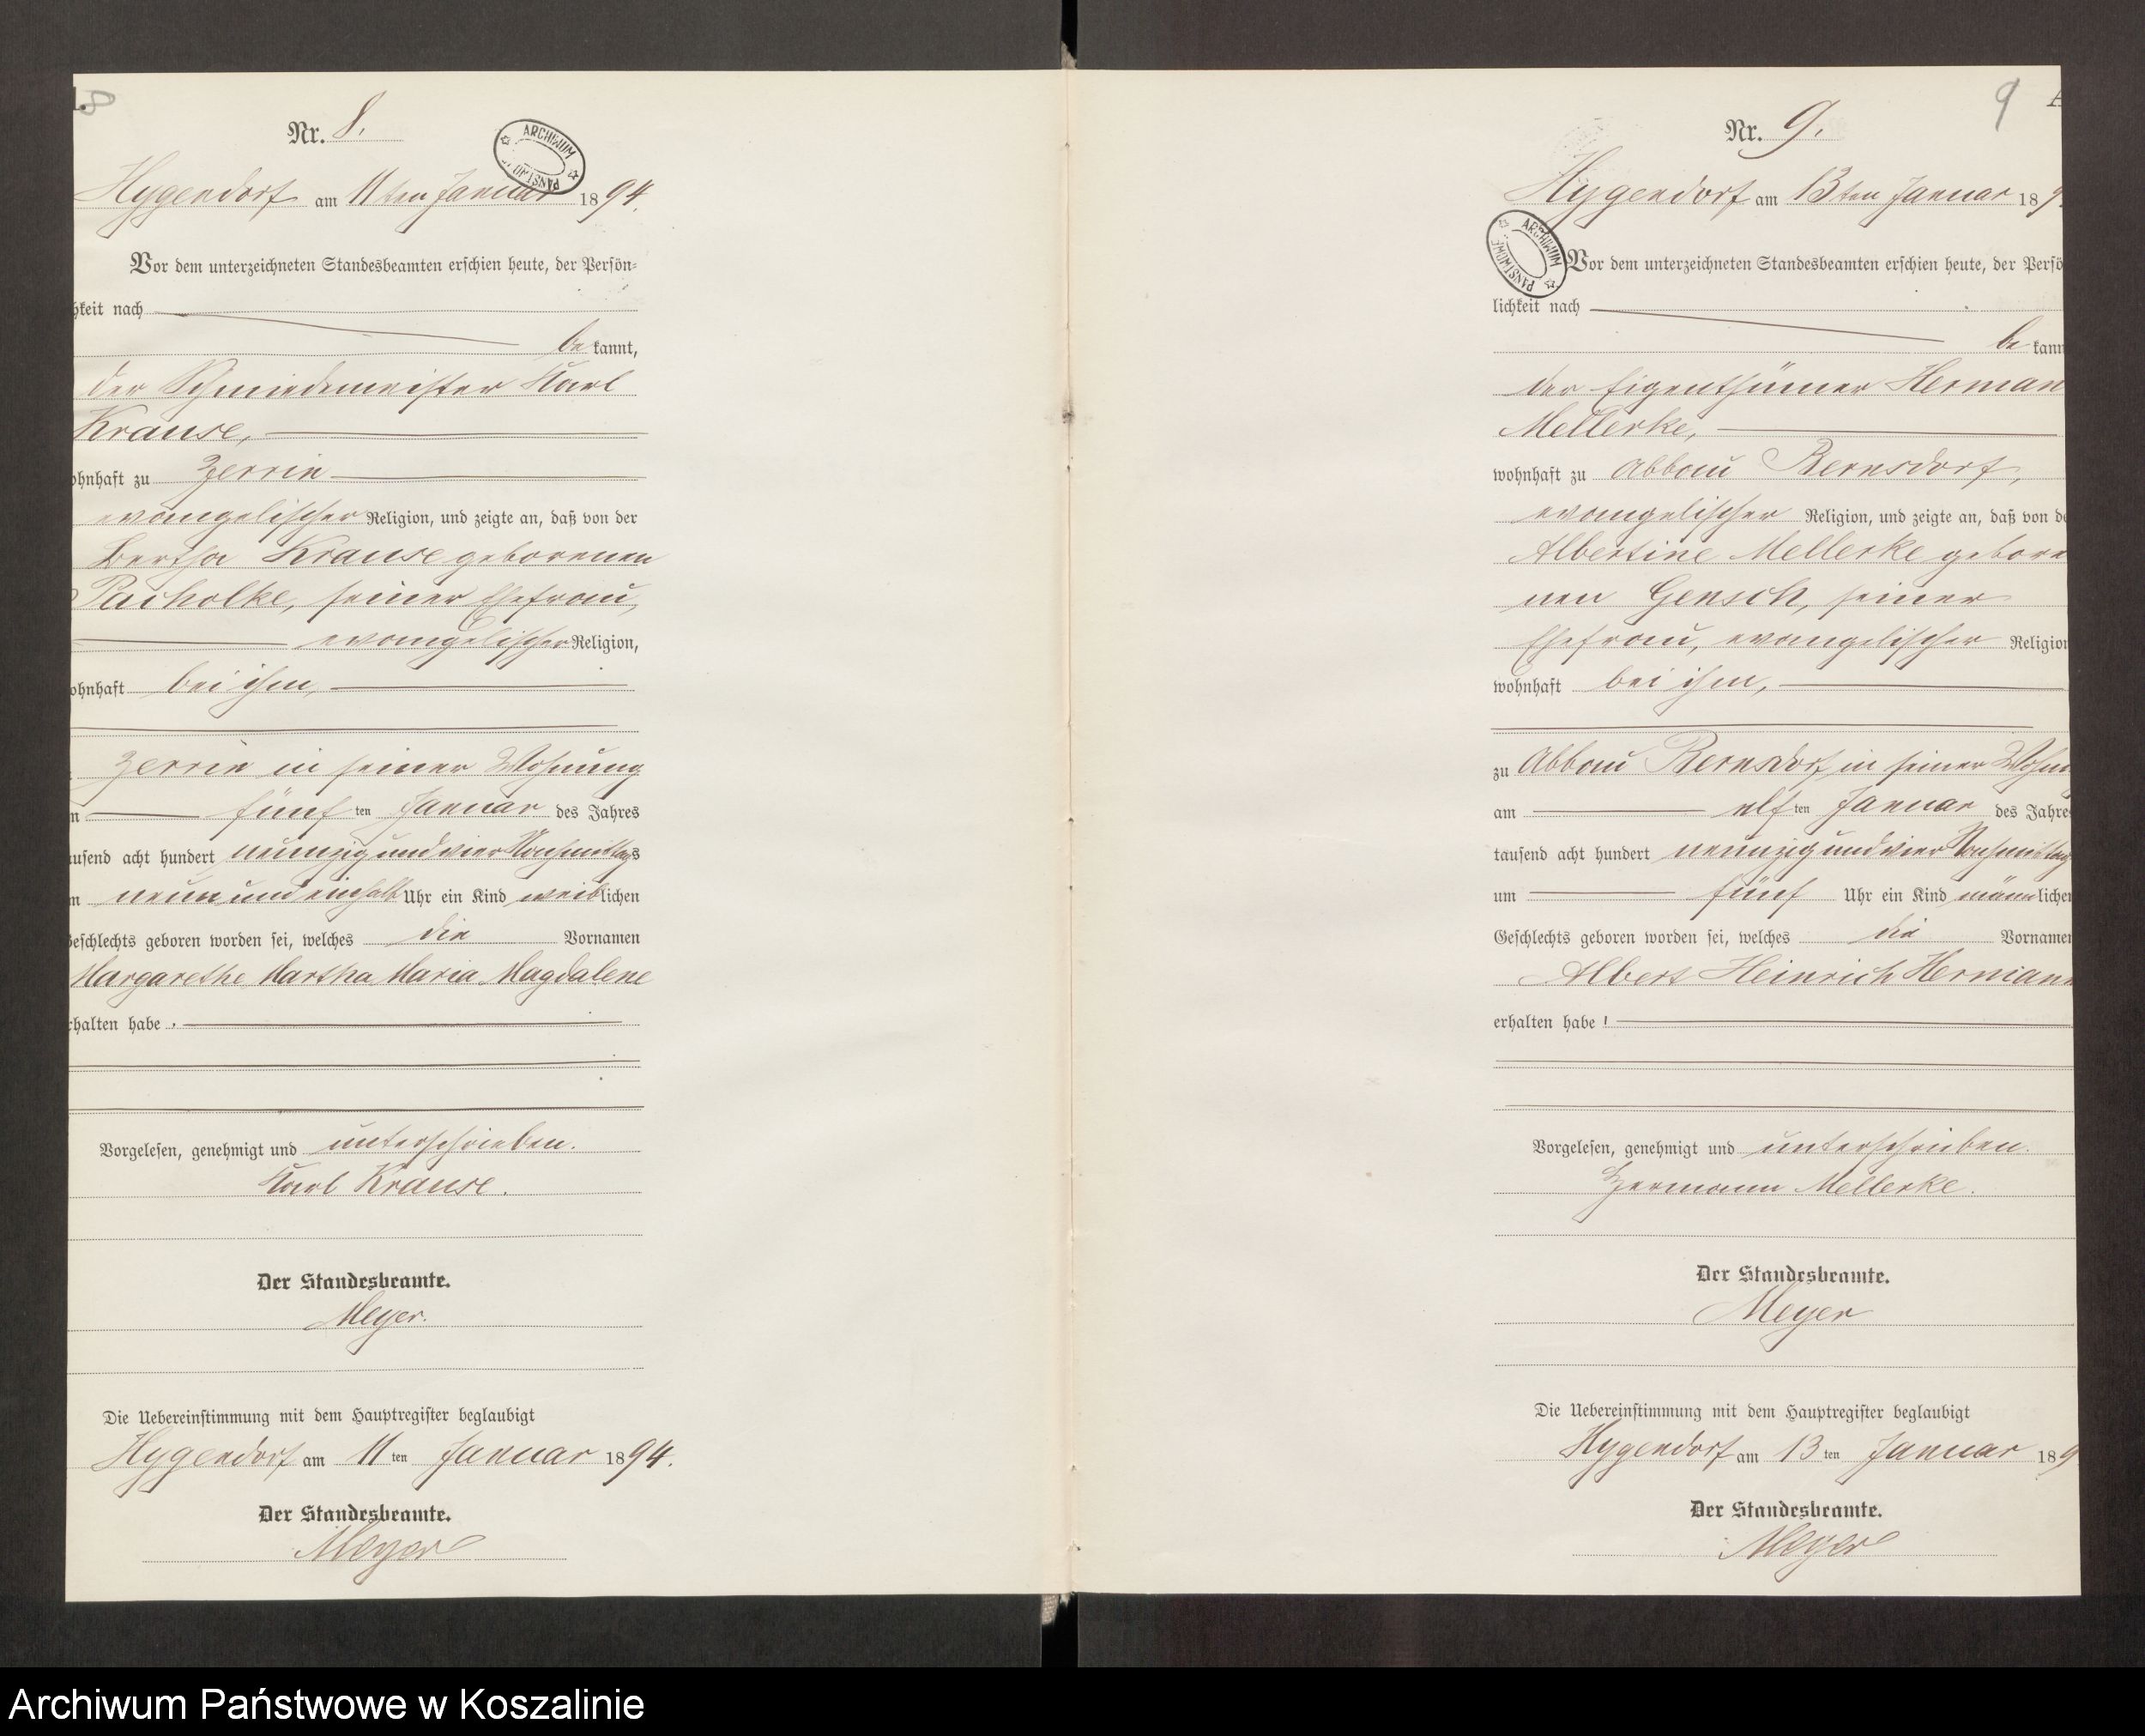 8
Nr. 8.
ARCHIWUM
PAŃSTWO
Hygendorf am 11ten Januar 1894.
Vor dem unterzeichneten Standesbeamten erschien heute, der Persön=
hkeit nach
be kannt,
der Schmiedemeister Karl
Krause,
ohnhaft zu Zerrin
evangelischer Religion, und zeigte an, daß von der
Bertha Krause geborenen
Pacholke, seiner Ehefrau,
evangelischer Religion,
ohnhaft bei ihm,
Zerrin in seiner Wohnung
n fünf ten Januar des Jahres
usend acht hundert neunzig und vier Nachmittags
m neun und einhalb Uhr ein Kind weiblichen
Geschlechts geboren worden sei, welches die Vornamen
Margarethe Martha Maria Magdalene
rhalten habe.
Vorgelesen, genehmigt und unterschrieben.
Karl Krause.
Der Standesbeamte.
Meyer.
Die Uebereinstimmung mit dem Hauptregister beglaubigt
Hygendorf am 11 ten Januar 1894.
Der Standesbeamte.
Meyer
9
A
Nr. 9.
Hygendorf am 13ten Januar 189
ARCHIWUM
PAŃSTWOWE
Vor dem unterzeichneten Standesbeamten erschien heute, der Persö
lichkeit nach
be kann
der Eigenthümer Herman
Mellerke,
wohnhaft zu Abbau Bernsdorf,
evangelischer Religion, und zeigte an, daß von de
Albertine Mellerke gebore
nen Gensch, seiner
Ehefrau, evangelischer Religion
wohnhaft bei ihm,
zu Abbau Bernsdorf in seiner Wohnu
am elf ten Januar des Jahres
tausend acht hundert neunzig und vier Nachmittag
um fünf Uhr ein Kind männlichen
Geschlechts geboren worden sei, welches die Vornamen
Albert Heinrich Hermann
erhalten habe
Vorgelesen, genehmigt und unterschrieben.
Hermann Mellerke.
Der Standesbeamte.
Meyer
Die Uebereinstimmung mit dem Hauptregister beglaubigt
Hygendorf am 13 ten Januar 189
Der Standesbeamte.
Meyer
Archiwum Państwowe w Koszalinie